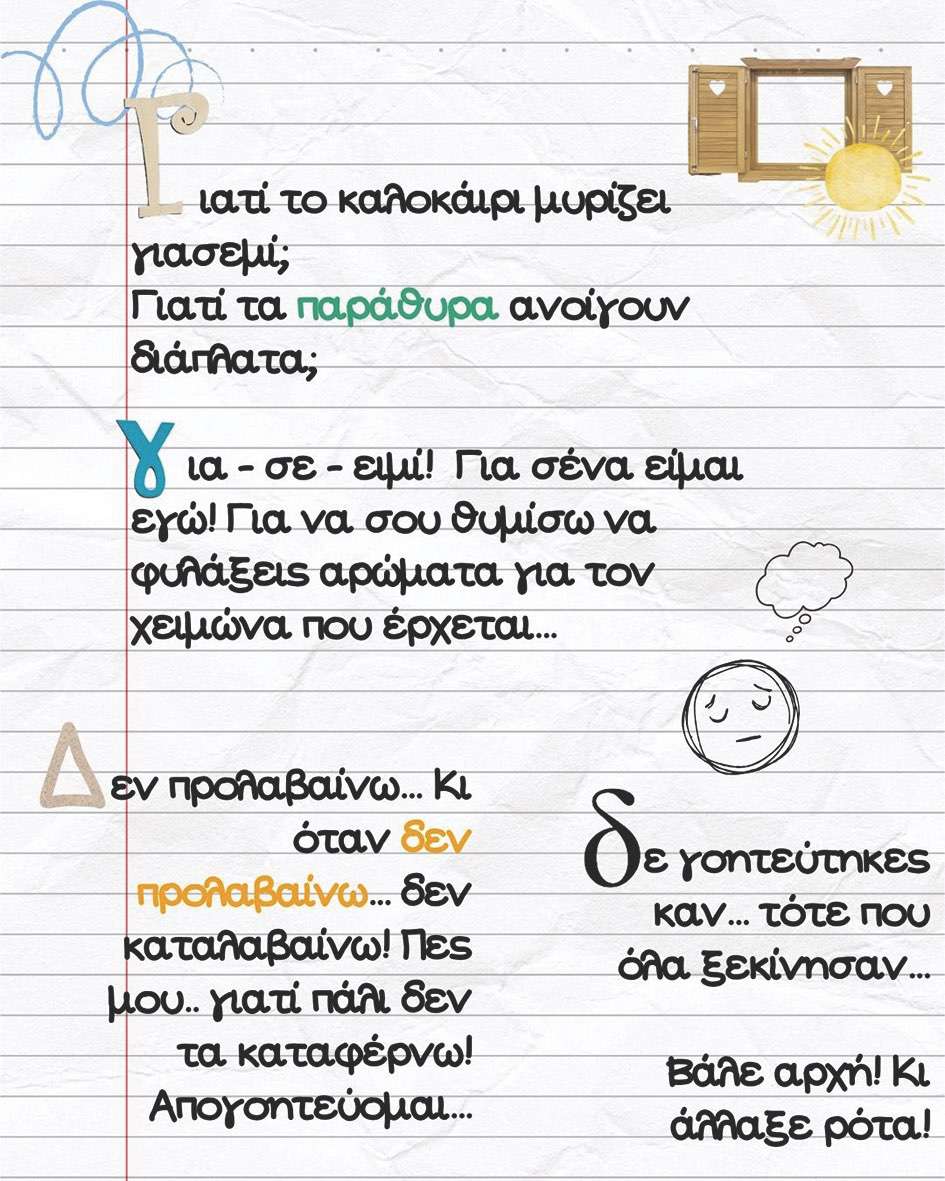 Γιατί το καλοκαίρι μυρίζει
γιασεμί;
Γιατί τα παράθυρα ανοίγουν
διάπλατα;
για - σε - ειμί! Για σένα είμαι
εγώ! Για να σου θυμίσω να
φυλάξεις αρώματα για τον
χειμώνα που έρχεται...
Δεν προλαβαίνω... Κι
όταν δεν
προλαβαίνω... δεν
καταλαβαίνω! Πες
μου.. γιατί πάλι δεν
τα καταφέρνω!
Απογοητεύομαι...
δε γοητεύτηκες
καν... τότε που
όλα ξεκίνησαν...
Βάλε αρχή! Κι
άλλαξε ρότα!